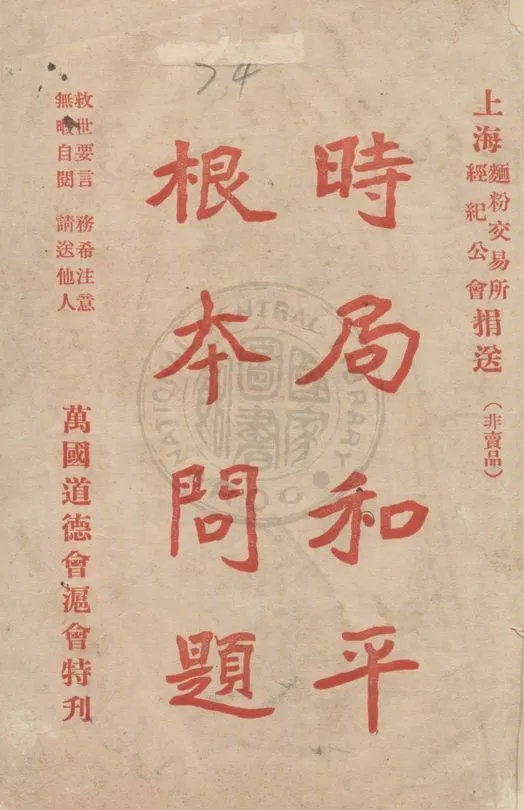 上海麵粉交易所經紀公會捐送(非賣品)
時局和平
根本問題
救世要言 務希注意
無暇自閱 請送他人
萬國道德會滬會特刊
74
NATIONAL CENTRAL LIBRARY
國家圖書館